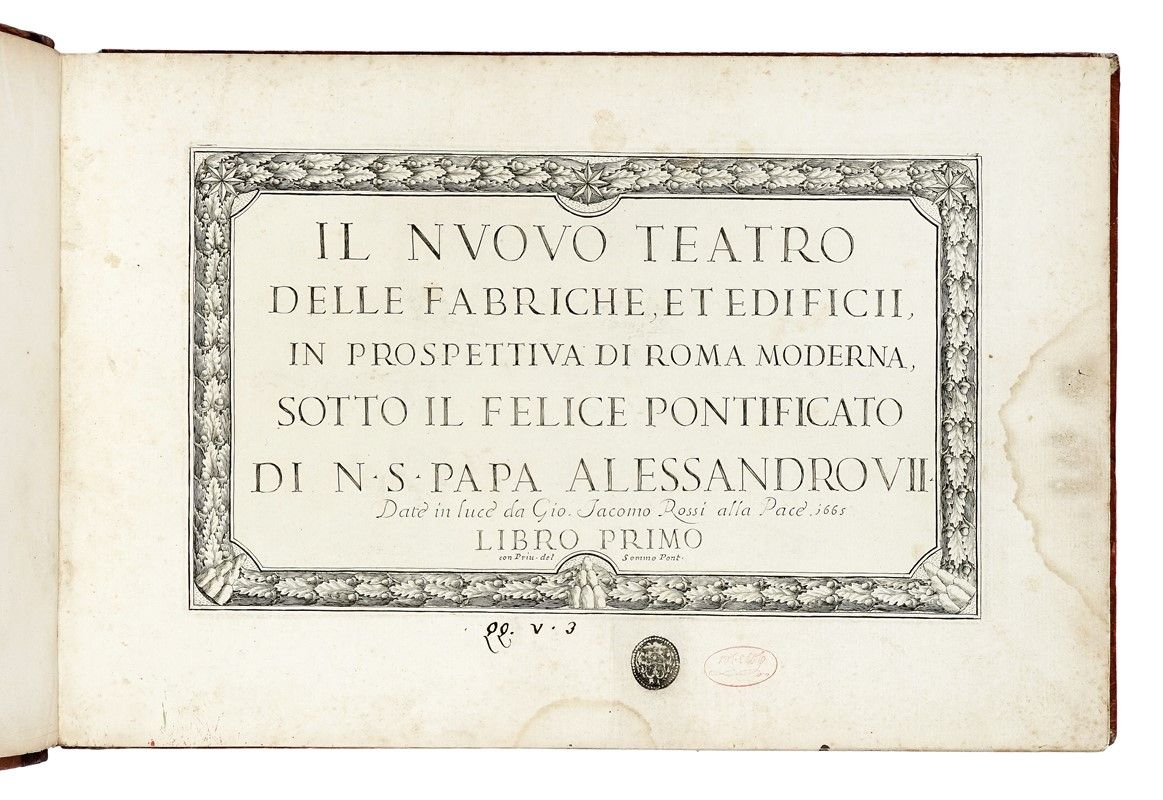 IL NVOVO TEATRO
DELLE FABRICHE, ET EDIFICII,
IN PROSPETTIVA DI ROMA MODERNA,
SOTTO IL FELICE PONTIFICATO
DI N·S·PAPA ALESSANDRO VII·
Date in luce da Gio. Jacomo Rossi alla Pace. 1665
LIBRO PRIMO
con Priu. del Sommo Pont.
QQ. V. 3